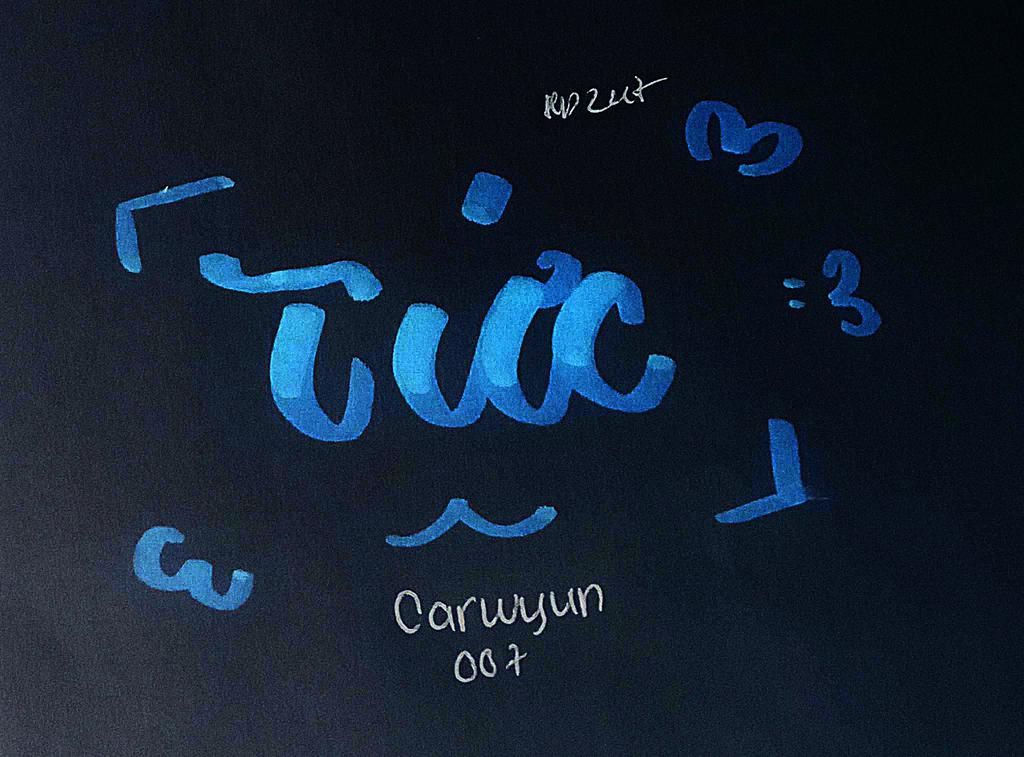 「Tức」
:3
Carwyun
007